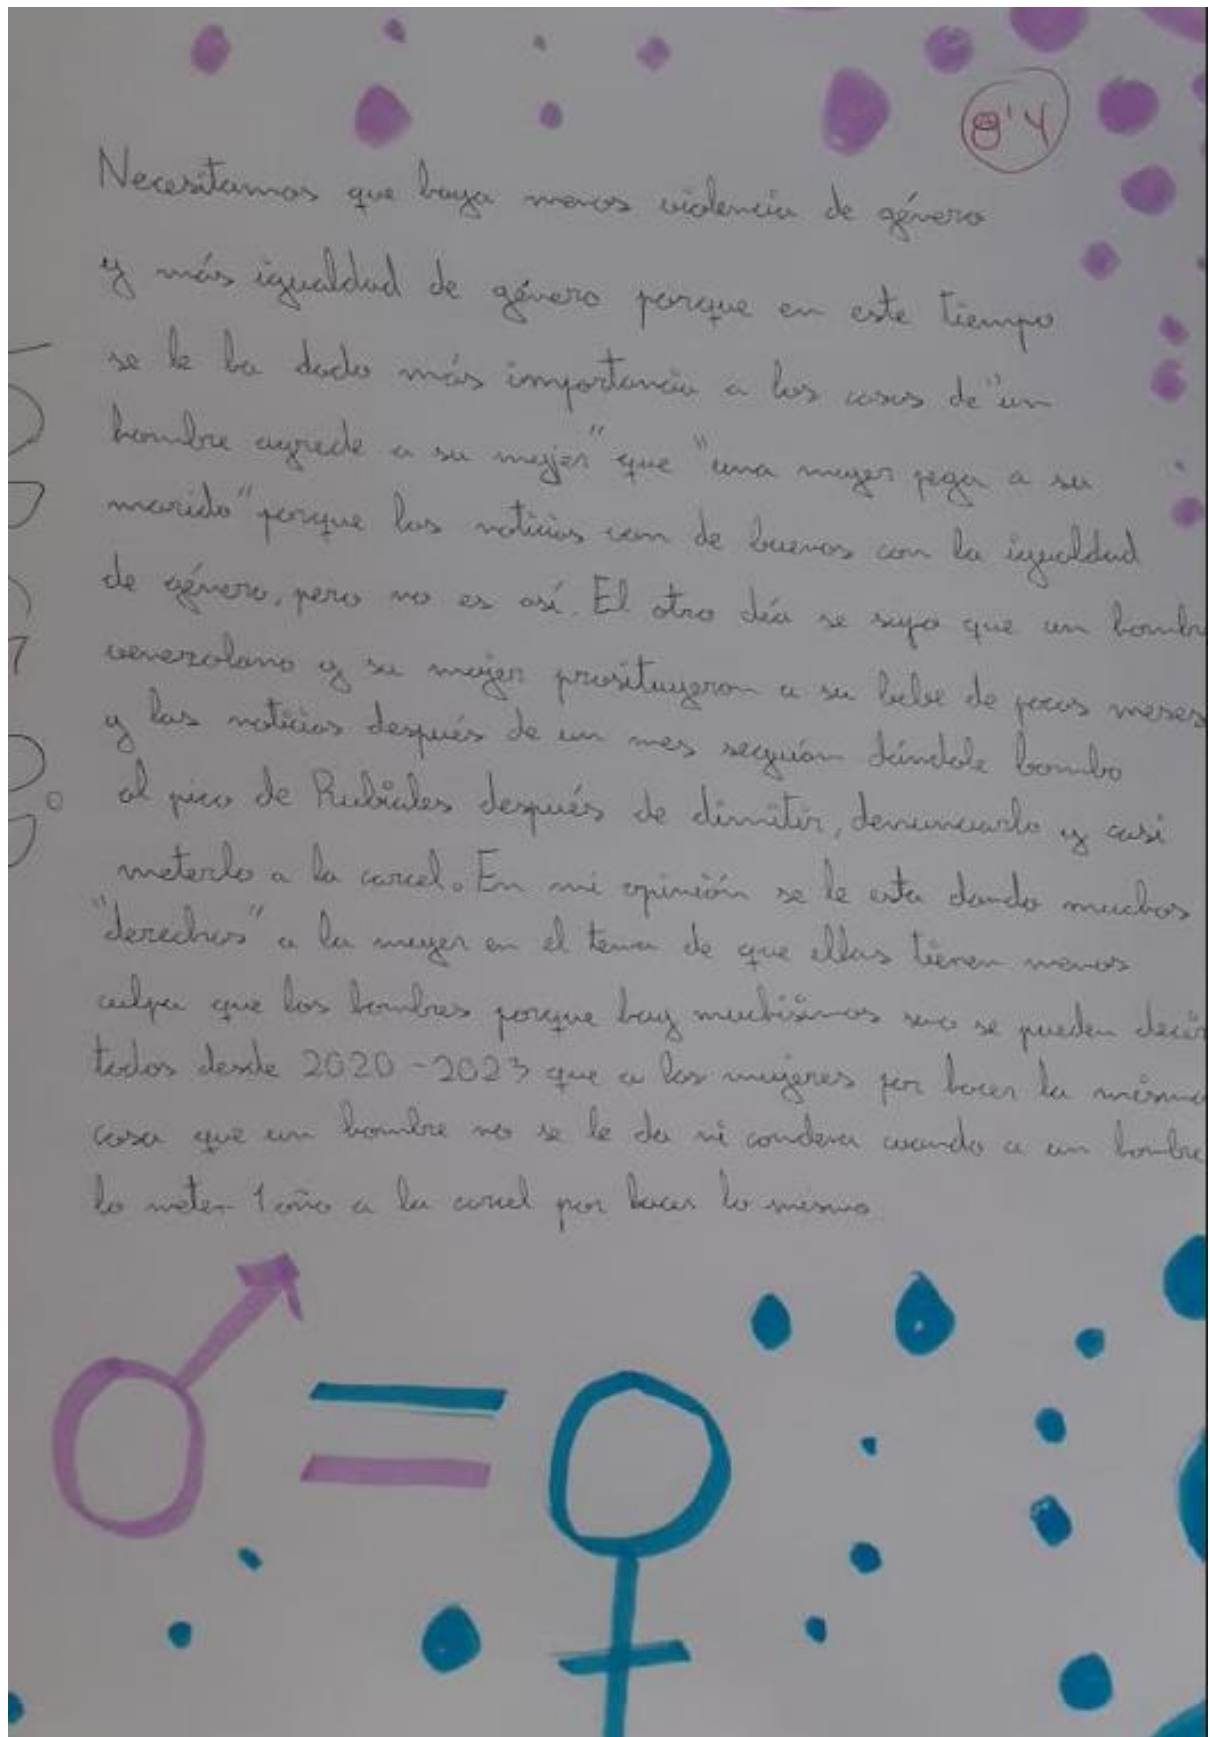 8'4
Necesitamos que haya menos violencia de género
y más igualdad de género porque en este tiempo
se le ha dado más importancia a los casos de "un
hombre agrede a su mujer" que "una mujer pega a su
marido" porque las noticias van de buenos con la igualdad
de género, pero no es así. El otro día se supo que un hombre
venezolano y su mujer prosituyeron a su bebe de pocos meses
y las noticias después de un mes seguían dándole bombo
al pico de Rubiales después de dimitir, denunciarlo y casi
meterlo a la carcel. En mi opinión se le esta dando muchos
"derechos" a la mujer en el tema de que ellas tienen menos
culpa que los hombres porque hay muchísimos sino se pueden decir
todos desde 2020-2023 que a las mujeres por hacer la misma
cosa que un hombre no se le da ni condena cuando a un hombre
lo meten 1 año a la carcel por hacer lo mismo.